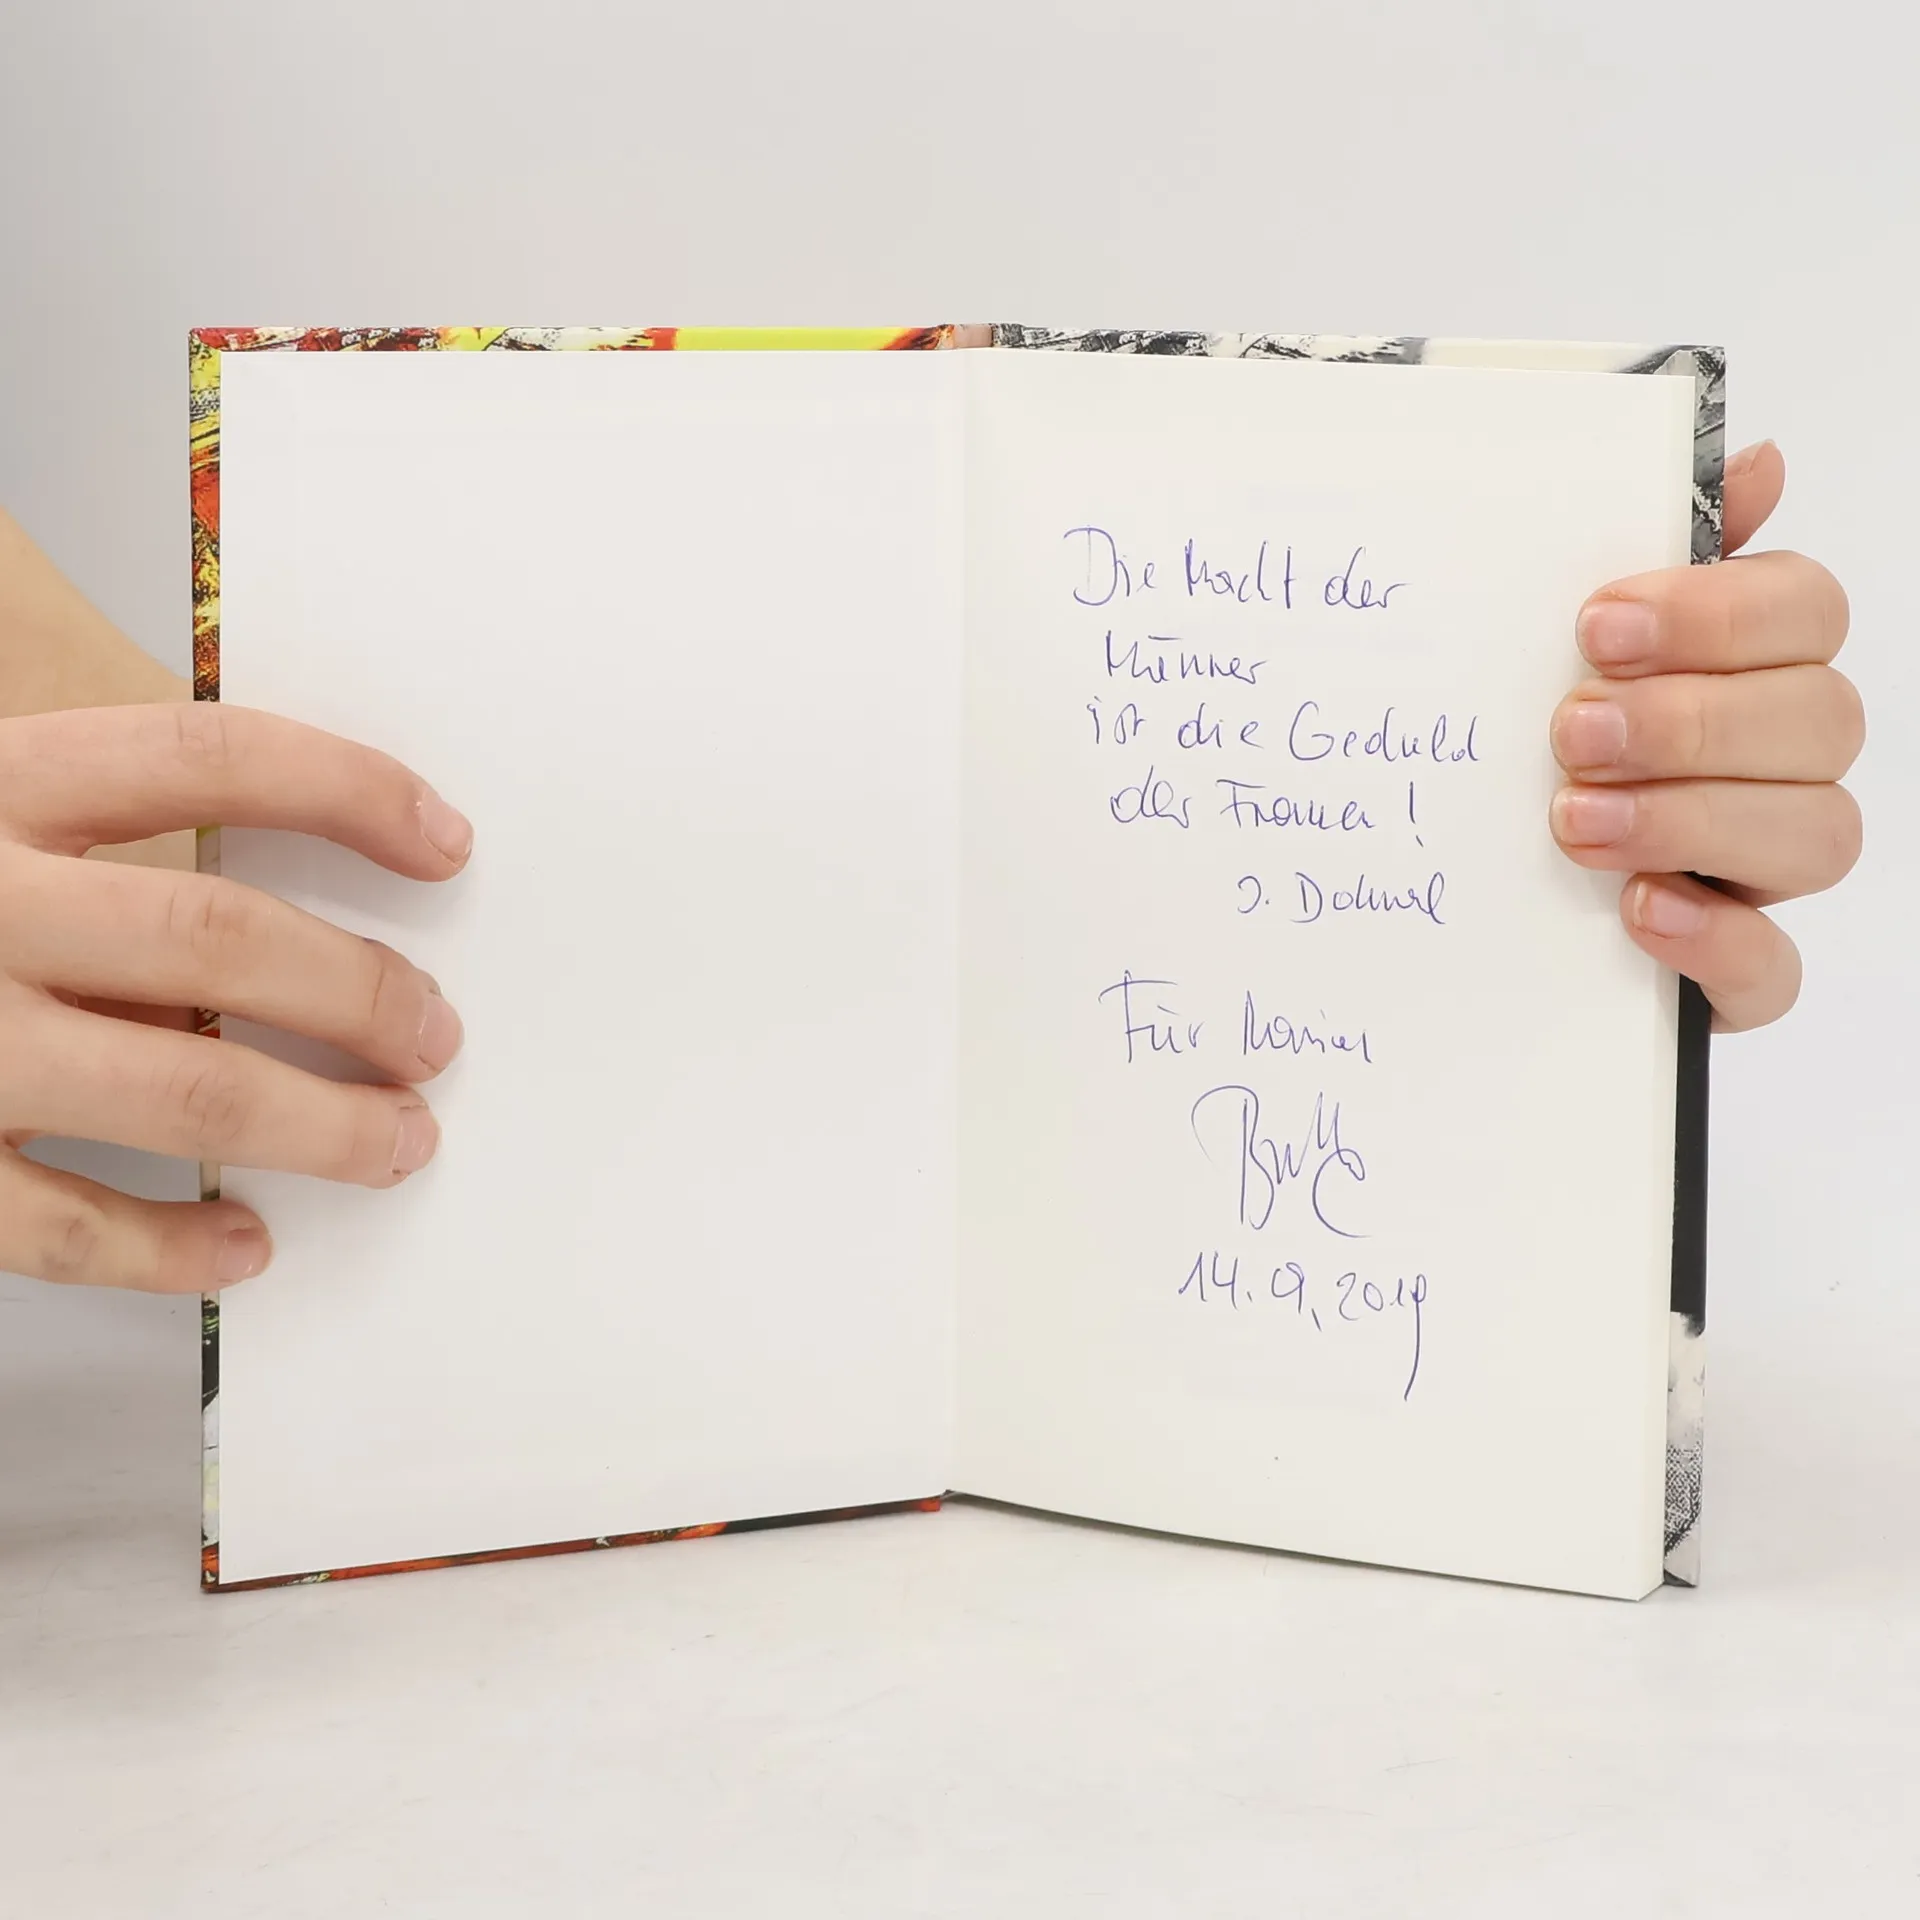 Die Macht der
Männer
ist die Geduld
der Frauen!
J. Dohnal
Für Marion
14.9.2019